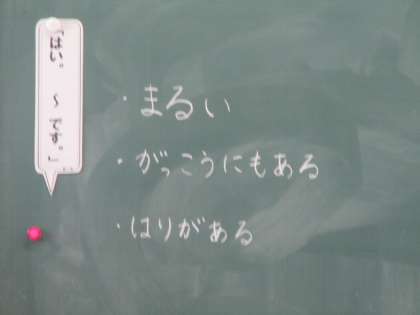 「はい。 ～ です。」
・まるい
・がっこうにもある
・はりがある